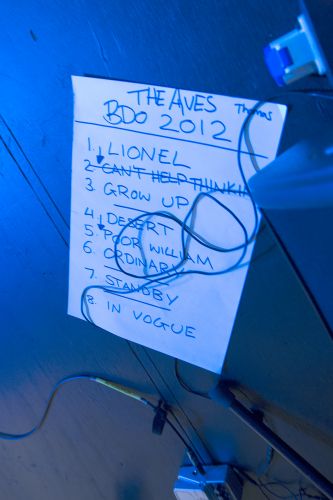 THE AVES Thomas
BDO 2012
1. LIONEL
2 CAN'T HELP THINKIN
3. GROW UP
4. DESERT
5. POOR WILLIAM
6. ORDINARY
7. STANDBY
8. IN VOGUE